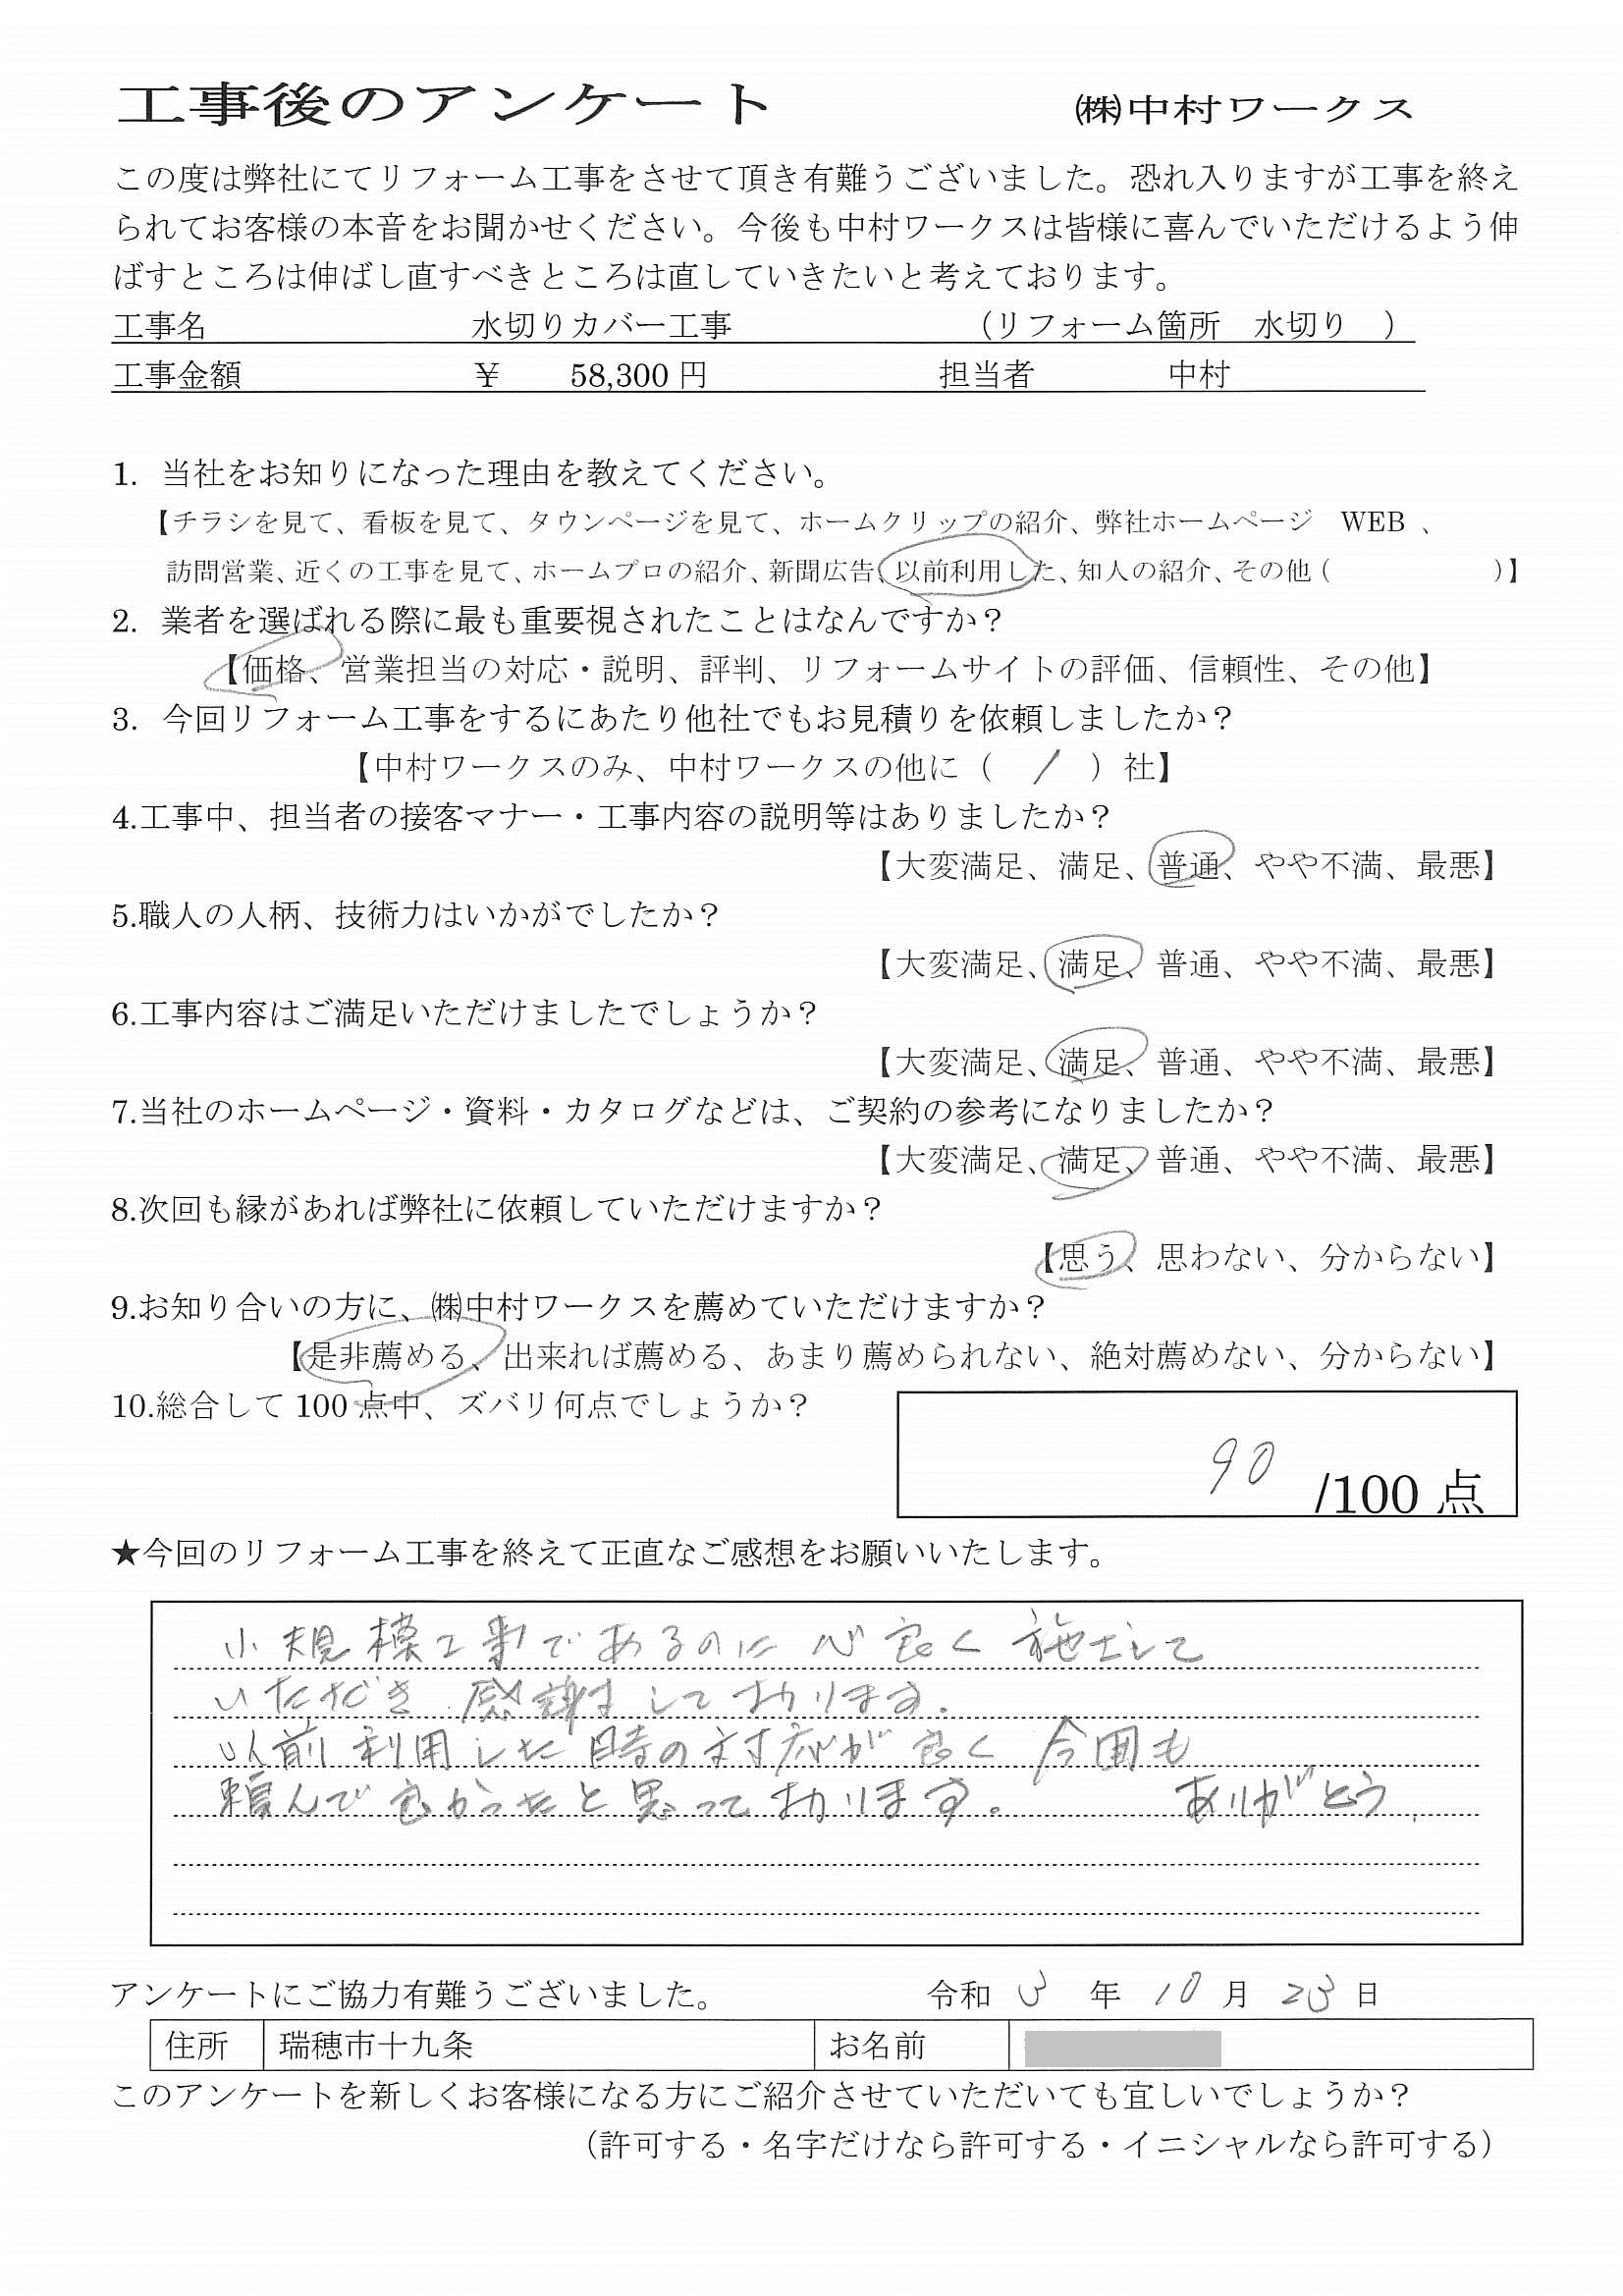 工事後のアンケート ㈱中村ワークス
この度は弊社にてリフォーム工事をさせて頂き有難うございました。恐れ入りますが工事を終え
られてお客様の本音をお聞かせください。今後も中村ワークスは皆様に喜んでいただけるよう伸
ばすところは伸ばし直すべきところは直していきたいと考えております。
工事名 水切りカバー工事 （リフォーム箇所 水切り ）
工事金額 ¥ 58,300 円 担当者 中村
1. 当社をお知りになった理由を教えてください。
【チラシを見て、看板を見て、タウンページを見て、ホームクリップの紹介、弊社ホームページ WEB 、
訪問営業、近くの工事を見て、ホームプロの紹介、新聞広告、以前利用した、知人の紹介、その他（ ）】
2. 業者を選ばれる際に最も重要視されたことはなんですか？
【価格、営業担当の対応・説明、評判、リフォームサイトの評価、信頼性、その他】
3. 今回リフォーム工事をするにあたり他社でもお見積りを依頼しましたか？
【中村ワークスのみ、中村ワークスの他に（ / ）社】
4.工事中、担当者の接客マナー・工事内容の説明等はありましたか？
【大変満足、満足、普通、やや不満、最悪】
5.職人の人柄、技術力はいかがでしたか？
【大変満足、満足、普通、やや不満、最悪】
6.工事内容はご満足いただけましたでしょうか？
【大変満足、満足、普通、やや不満、最悪】
7.当社のホームページ・資料・カタログなどは、ご契約の参考になりましたか？
【大変満足、満足、普通、やや不満、最悪】
8.次回も縁があれば弊社に依頼していただけますか？
【思う、思わない、分からない】
9.お知り合いの方に、㈱中村ワークスを薦めていただけますか？
【是非薦める、出来れば薦める、あまり薦められない、絶対薦めない、分からない】
10.総合して 100 点中、ズバリ何点でしょうか？
90 /100 点
★今回のリフォーム工事を終えて正直なご感想をお願いいたします。
小規模工事であるのに心良く施工して
いただき 感謝しております。
以前利用した時の対応が良く 今回も
頼んで良かったと思っております。 ありがとう.
アンケートにご協力有難うございました。 令和 3 年 10 月 23 日
住所 瑞穂市十九条 お名前
このアンケートを新しくお客様になる方にご紹介させていただいても宜しいでしょうか？
（許可する・名字だけなら許可する・イニシャルなら許可する）